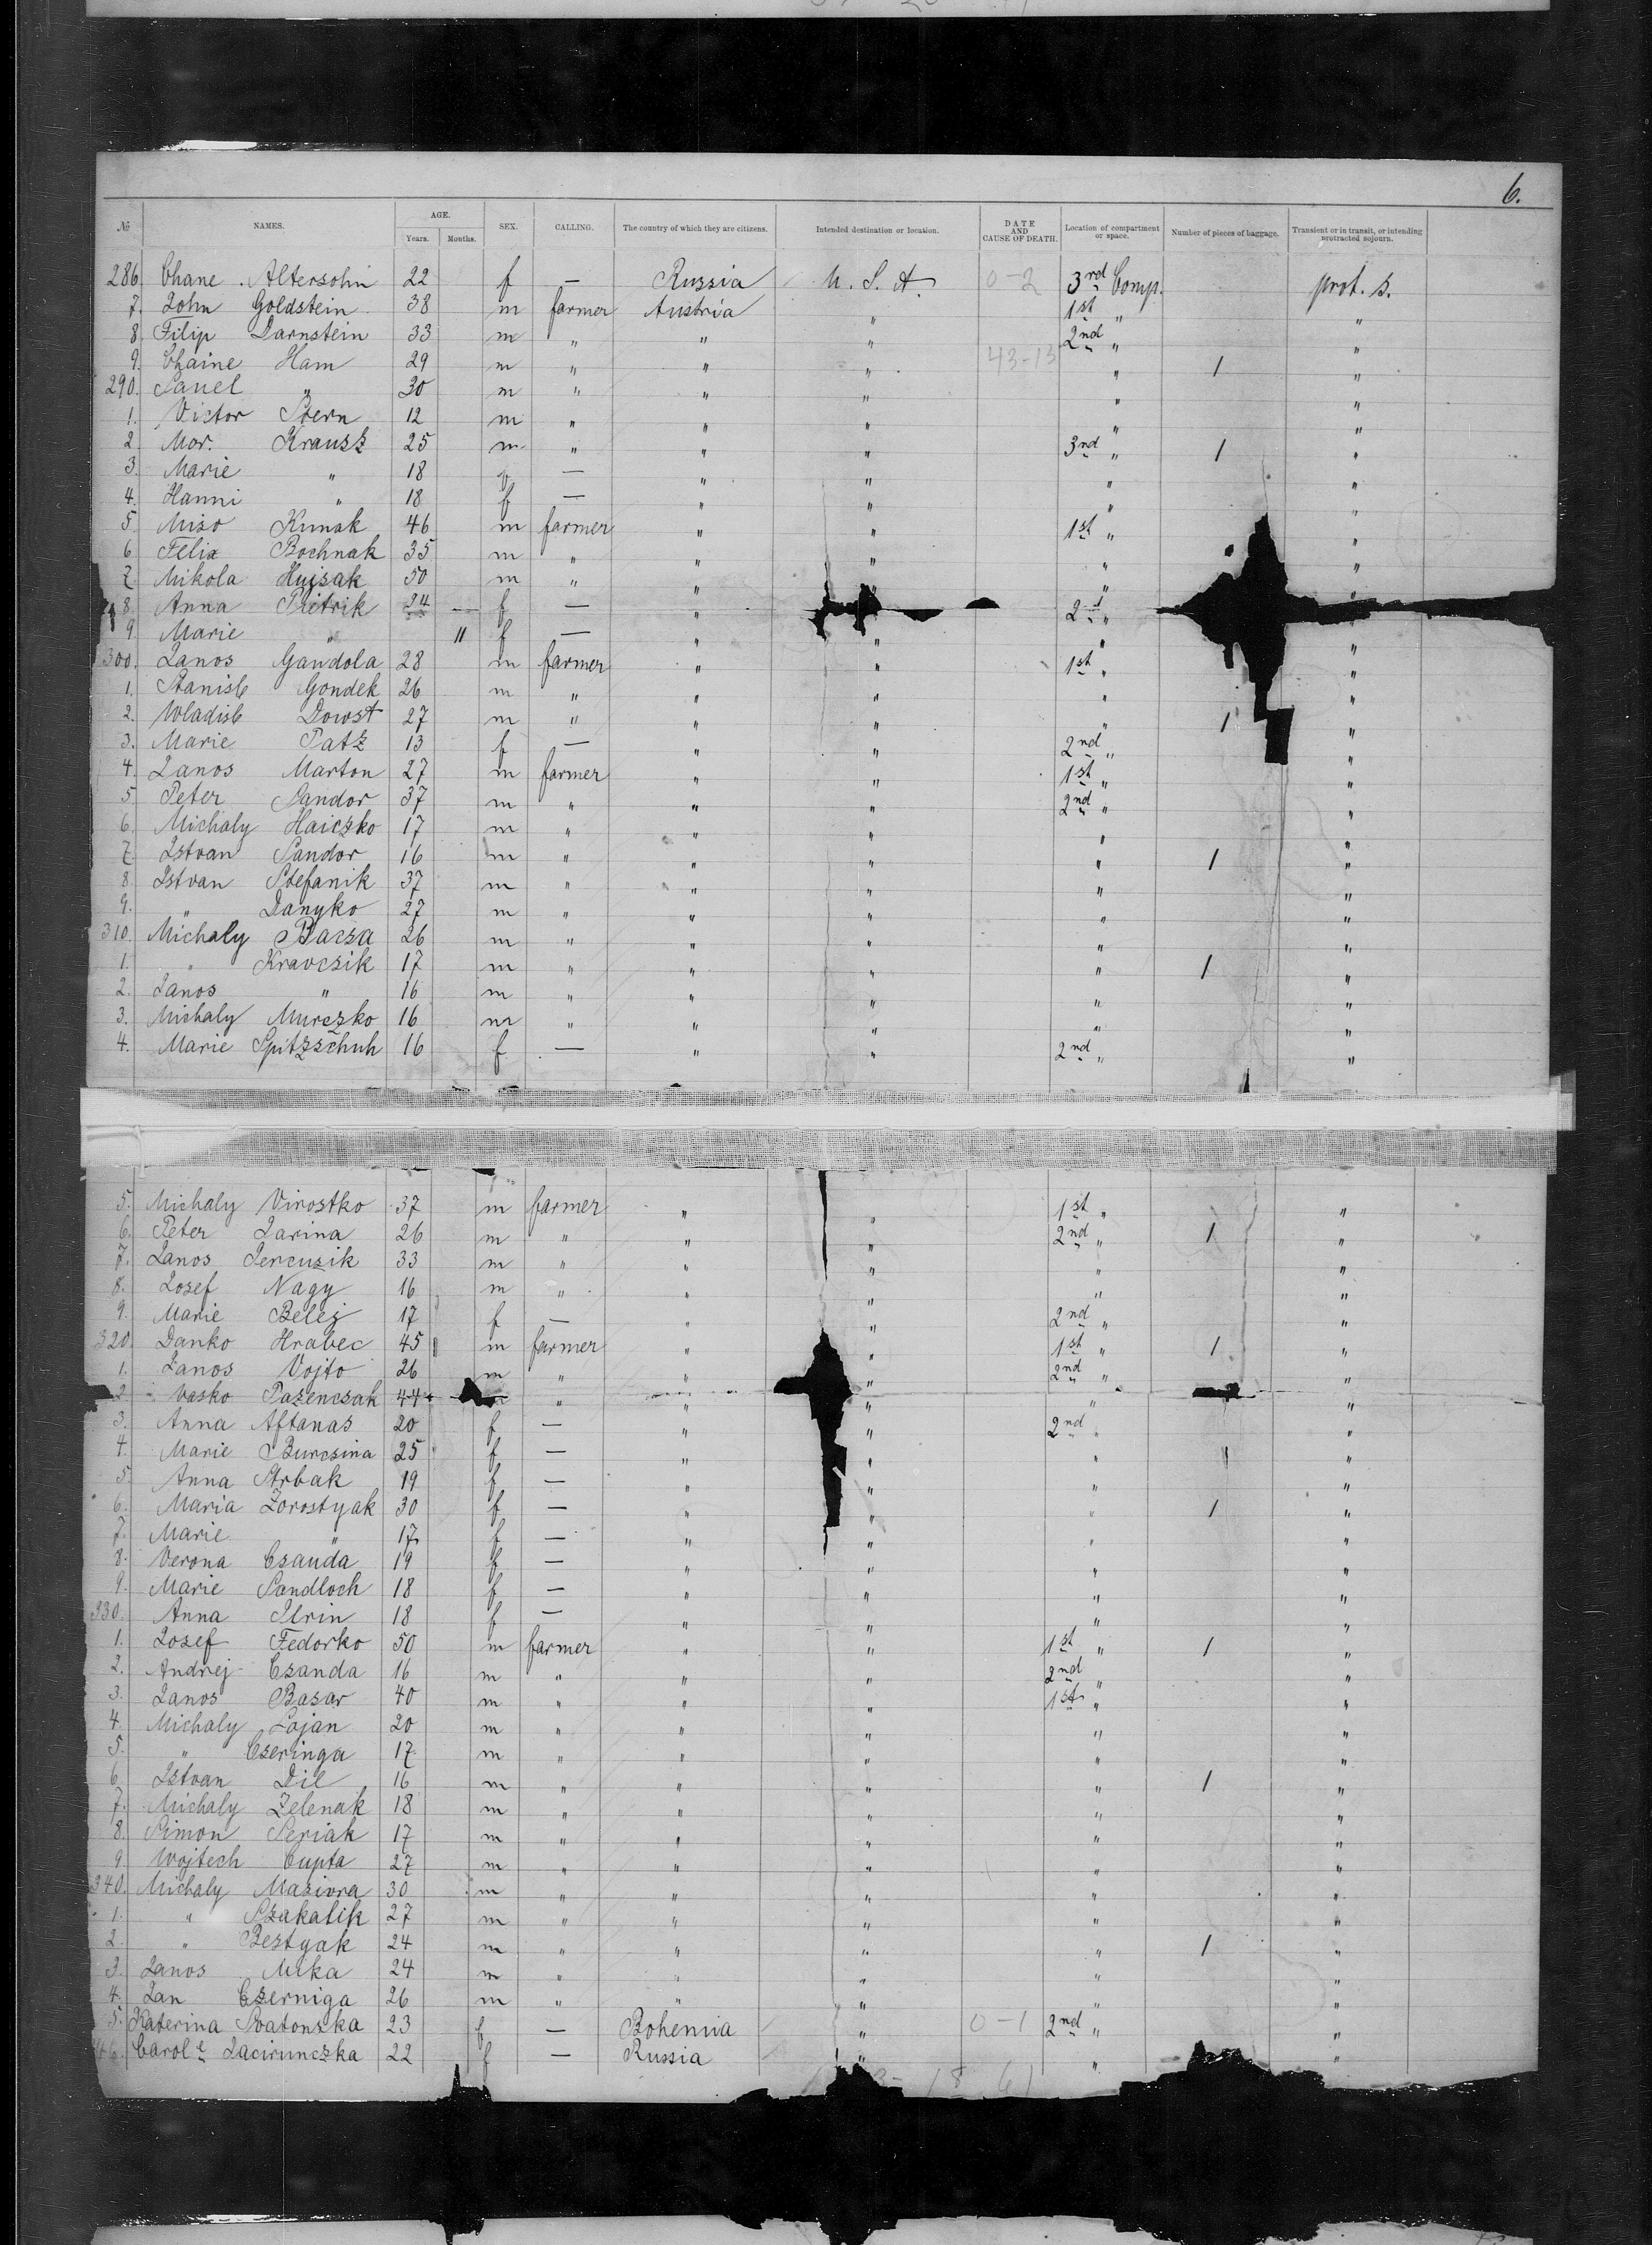 6.
№ NAMES. AGE. Years. Months. SEX. CALLING. The country of which they are citizens. Intended destination or location. DATE AND CAUSE OF DEATH. Location of compartment or space. Number of pieces of baggage. Transient or in transit, or intending protracted sojourn.
286. Chane Altersohn 22 f — Russia U. S. A. 0-2 3rd Comp. prot. s.
7. John Goldstein 38 m farmer Austria " 1st " "
8. Filip Darnstein 33 m " " " 2nd " "
9. Chaine Ham 29 m " " " 43-13 " 1 "
290. Pauel " 30 m " " " " "
1. Victor Stern 12 m " " " " "
2. Mor. Krausz 25 m " " " 3rd " 1 "
3. Marie " 18 — " " " "
4. Hanni " 18 f — " " " "
5. Miso Kunak 46 m farmer " " 1st " "
6. Felix Bochnak 35 m " " " " "
7. Mikola Hujsak 50 m " " " " "
8. Anna Pietrik 24 — f — " " 2nd " "
9. Marie " 11 f — " " " "
300. Janos Gandola 28 m farmer " " 1st " "
1. Stanisl Gondek 26 m " " " " "
2. Wladisl Dowst 27 m " " " " 1 "
3. Marie Patz 13 f — " " 2nd " "
4. Janos Marton 27 m farmer " " 1st " "
5. Peter Sandor 37 m " " " 2nd " "
6. Michaly Haiczko 17 m " " " " "
7. Istvan Sandor 16 m " " " " 1 "
8. Istvan Stefanik 37 m " " " " "
9. " Danyko 27 m " " " " "
310. Michaly Barsa 26 m " " " " "
1. " Kravcsik 17 m " " " " 1 "
2. Janos " 16 m " " " " "
3. Michaly Murczko 16 m " " " " "
4. Marie Spitzschuh 16 f — " " 2nd " "
5. Michaly Virostko 37 m farmer " " 1st " "
6. Peter Jarina 26 m " " " 2nd " 1 "
7. Janos Jercusik 33 m " " " " "
8. Josef Nagy 16 m " " " " "
9. Marie Belej 17 f — " " 2nd " "
320. Danko Hrabec 45 m farmer " " 1st " 1 "
1. Janos Vojto 26 m " " " 2nd " "
2. Vasko Pazencsak 44 " " " " "
3. Anna Aftanas 20 f — " " 2nd " "
4. Marie Burcsina 25 f — " " " 1 "
5. Anna Strbak 19 f — " " " "
6. Maria Zorostyak 30 f — " " " 1 "
7. Marie " 17 f — " " " "
8. Verona Csanda 19 f — " " " "
9. Marie Sandloch 18 f — " " " "
330. Anna Ilrin 18 f — " " " "
1. Josef Fedorko 50 m farmer " " 1st " 1 "
2. Andrej Csanda 16 m " " " 2nd " "
3. Janos Basar 40 m " " " 1st " "
4. Michaly Lojan 20 m " " " " "
5. " Czeringa 17 m " " " " "
6. Istvan Dil 16 m " " " " 1 "
7. Michaly Zelenak 18 m " " " " "
8. Simon Seriak 17 m " " " " "
9. Wojtech Cupta 27 m " " " " "
340. Michaly Masiora 30 m " " " " "
1. " Szakalik 27 m " " " " "
2. " Bestyak 24 m " " " " 1 "
3. Janos Mika 24 m " " " " "
4. Jan Czerniga 26 m " " " " "
5. Katerina Svatonska 23 f — Bohemia " 0-1 2nd " "
46. Carole Jacirunczka 22 f — Russia " " "